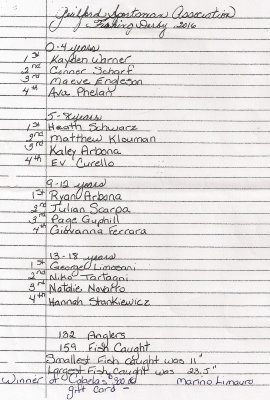 Guilford Sportsmen Association
Fishing Derby 2016
0-4 years
1st Kayden Warner
2nd Conner Scharf
3rd Maeve Engleson
4th Ava Phelan
5-8 years
1st Heath Schwarz
2nd Matthew Klouman
3rd Kaley Arbona
4th Ev Curello
9-12 years
1st Ryan Arbona
2nd Julian Scarpa
3rd Page Guphill
4th Giovanna Ferrara
13-18 years
1st George Limosani
2nd Niko Tartagni
3rd Natalie Novatto
4th Hannah Stankiewicz
132 Anglers
159 Fish Caught
Smallest Fish Caught was 11"
Largest Fish Caught was 23.5"
Winner of Cabela's Marino Limauro
gift card -